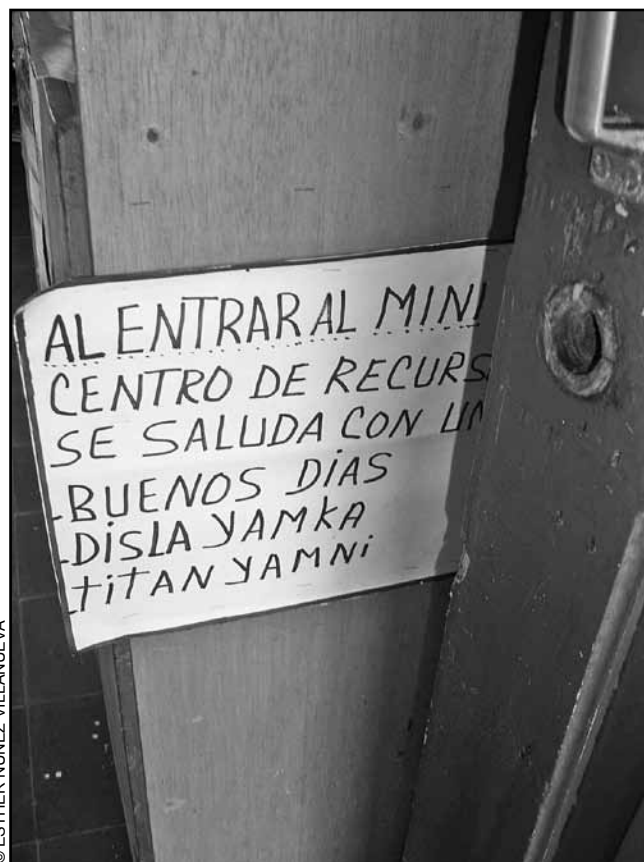 AL ENTRAR AL MINI
CENTRO DE RECURS
SE SALUDA CON UN
-BUENOS DIAS
-DISLA YAMKA
-TITAN YAMNi
© ESTHER NÚÑEZ VILLANUEVA